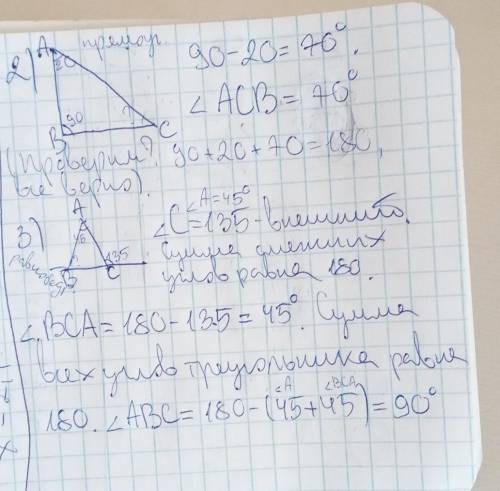 2) A прямоуг. 90-20=70°.
20
∠ACB=70°
90 ?
B C
(Проверим? 90+20+70=180,
все верно).
A ∠A=45°
3) ∠C=135-внешний.
45 135 Сумма смежных
равнобедр. ? C углов равна 180.
B
∠BCA=180-135=45°. Сумма
всех углов треугольника равна
∠A ∠BCA
180. ∠ABC=180-(45+45)=90°